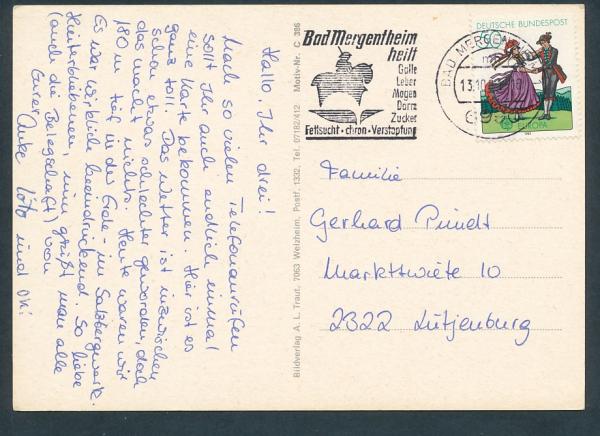 Hallo, Ihr drei!
Nach so vielen Telefonanrufen
sollt Ihr auch endlich einmal
eine Karte bekommen. Hier ist es
ganz toll. Das Wetter ist inzwischen
schon etwas schlechter geworden, doch
das macht nichts. Heute waren wir
180 m tief in der Erde - im Salzbergwerk.
Es war wirklich beeindruckend. So liebe
Hinterbliebenen, nun grüßt man alle
(auch die Belegschaft) von
Eurer
Anke und
Bildverlag A. L. Traut, 7063 Welzheim, Postf. 1332, Tel. 07182/412 Motiv-Nr. C 386
Bad Mergentheim
heilt
Galle
Leber
Magen
Darm
Zucker
Fettsucht · chron · Verstopfung
BAD MERGE
13.10
6990
DEUTSCHE BUNDESPOST
EUROPA
Familie
Gerhard Pundt
Marktwiete 10
2322 Lütjenburg